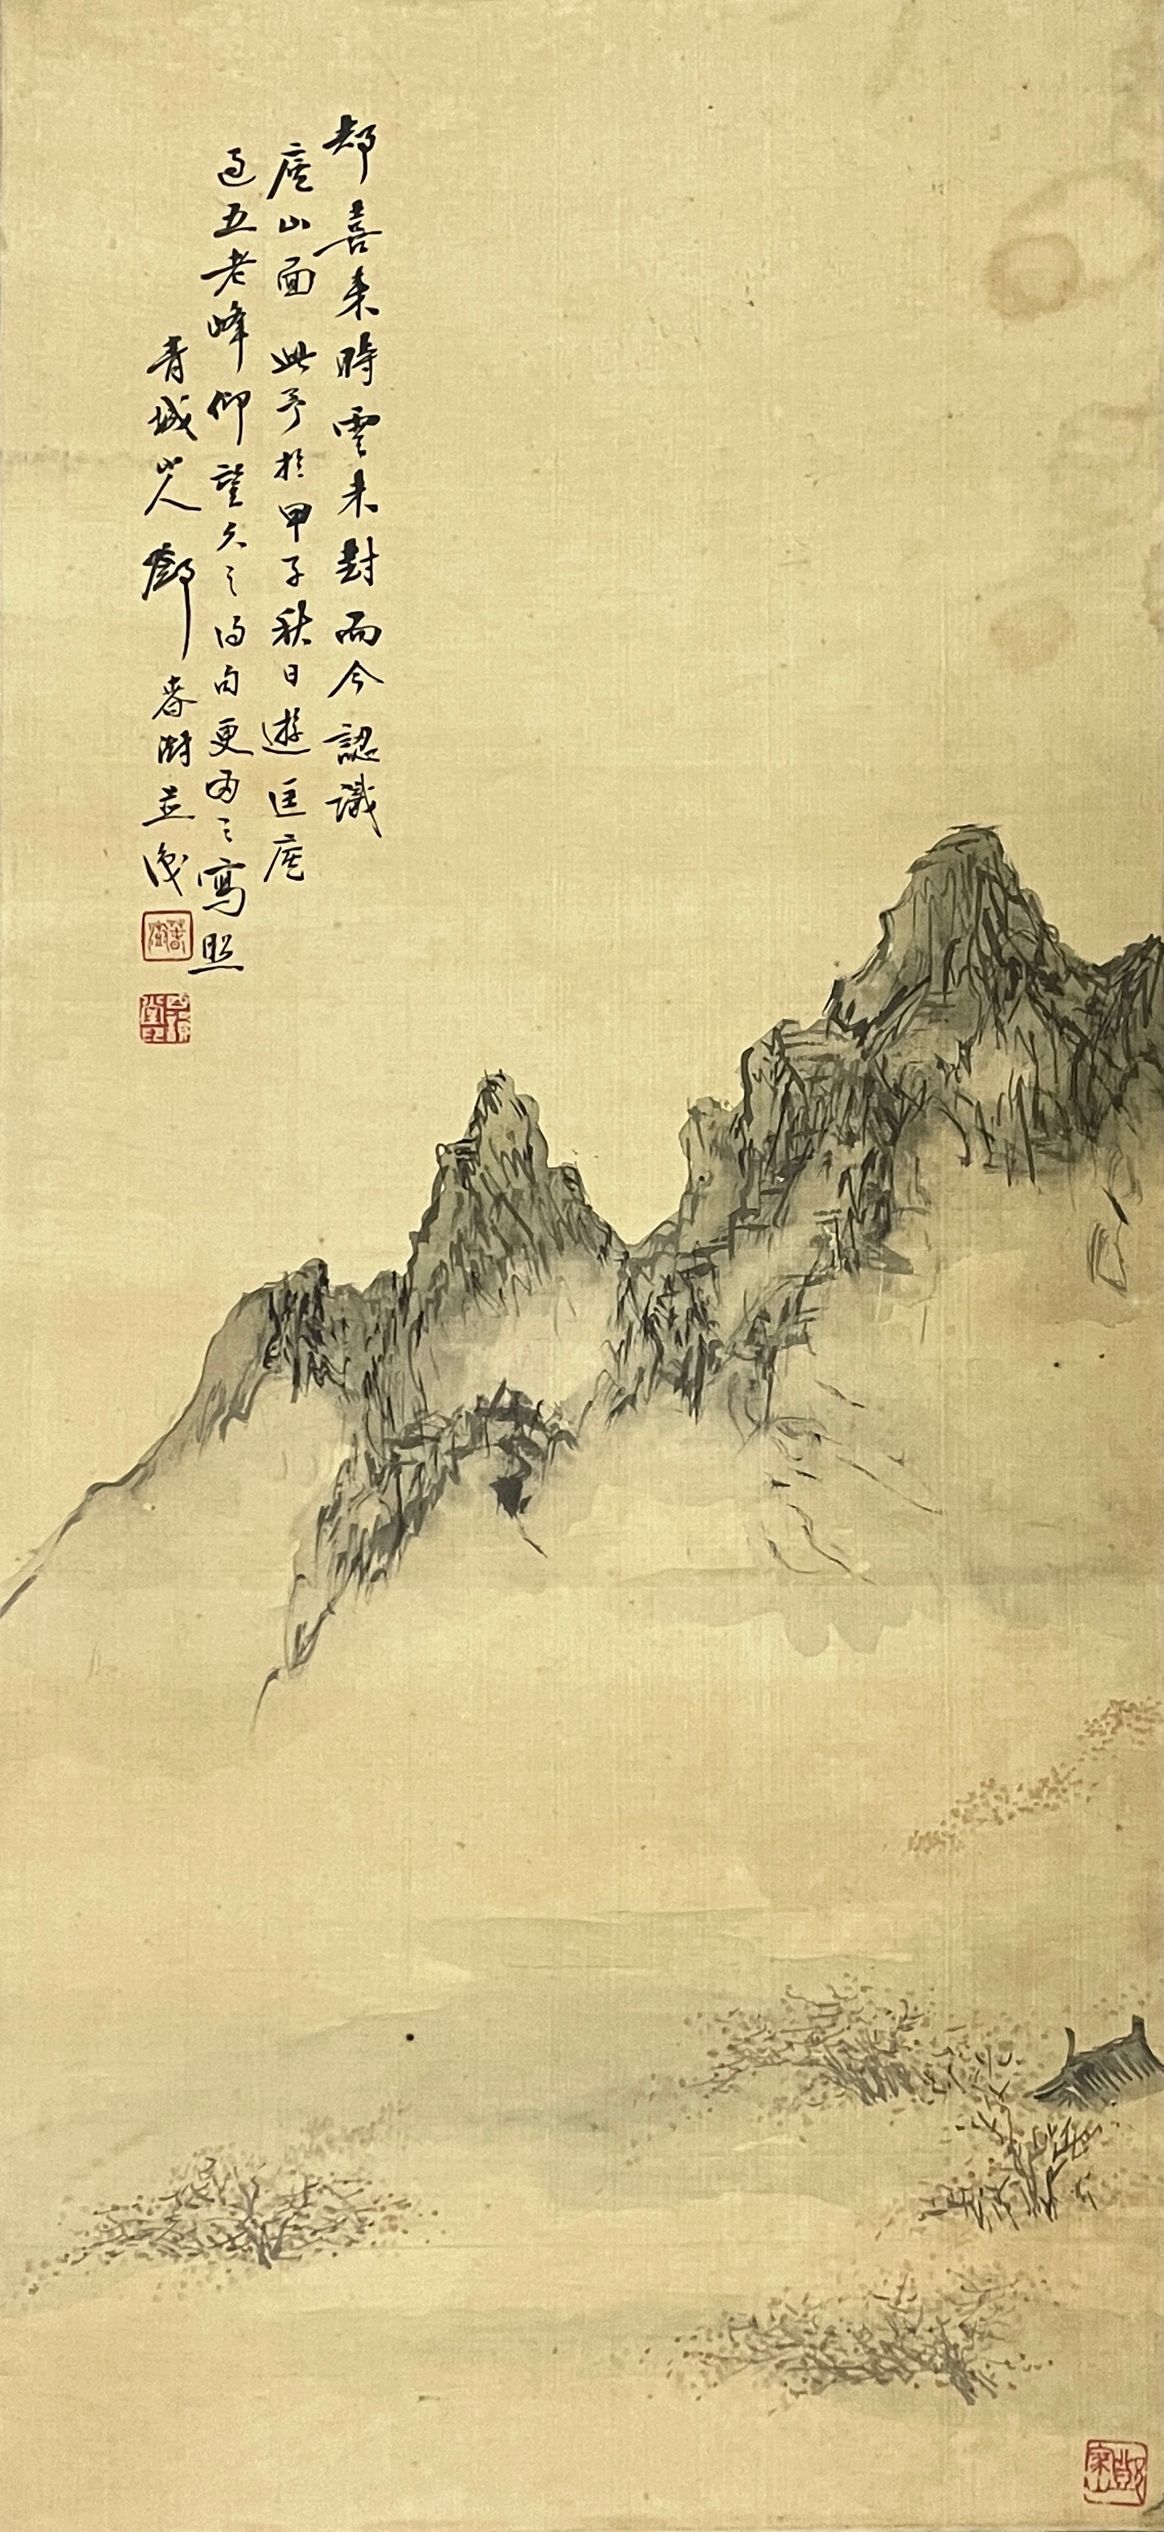 却喜來時雲未封而今認識
廬山面此予於甲子秋日遊匡廬
過五老峰仰望久之得句更為之寫照
青城山人鄧春澍並識